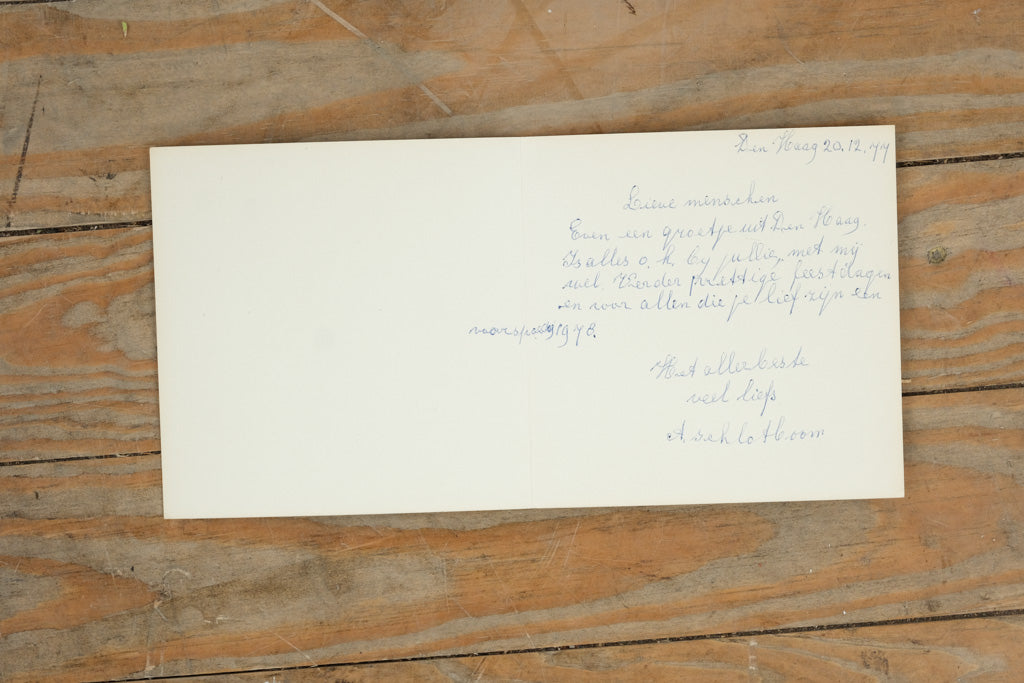 Den Haag 20.12.77
Lieve menschen
Even een groetje uit Den Haag.
Is alles o.k. by jullie, met mij
wel. Verder prettige feestdagen
en voor allen die je lief zijn een
voorspoedig 1978.
Het allerbeste
veel liefs
A schlotboom